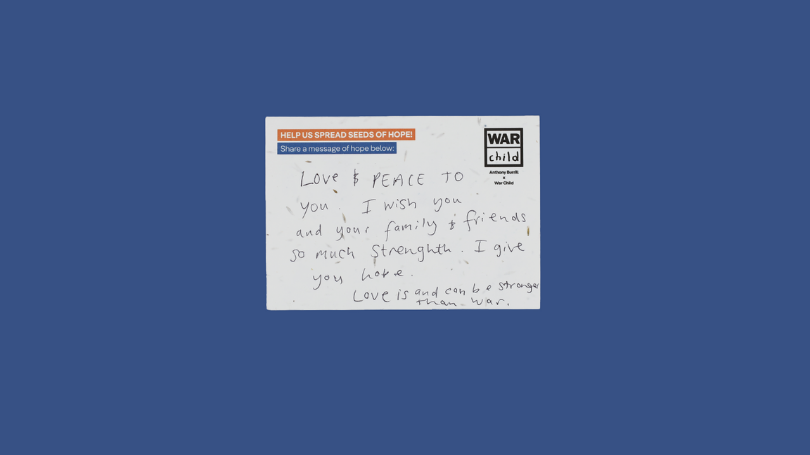 HELP US SPREAD SEEDS OF HOPE!
Share a message of hope below:
WAR
child
Anthony Burrill
x
War Child
Love & PEACE TO
you. I wish you
and your family & friends
so much Strenghth. I give
you hope.
Love is and can be stronger
than war.